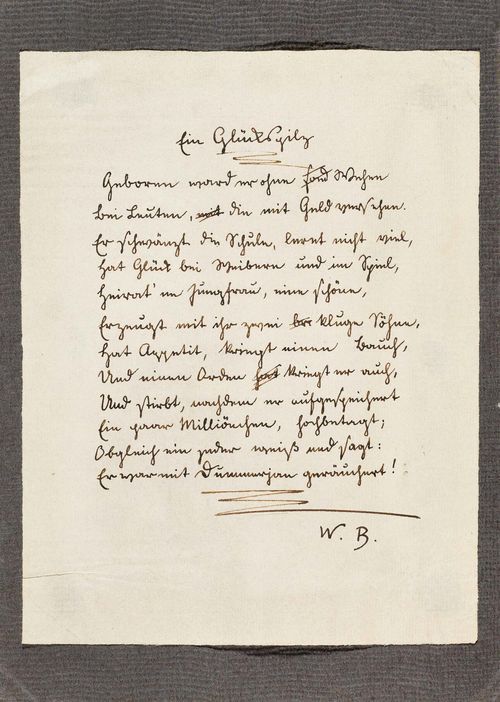 Ein Glückspilz
Geboren ward er ohne Wehen
Bei Leuten, die mit Geld versehen.
Er schwänzt die Schule, lernt nicht viel,
Hat Glück bei Weibern und im Spiel,
Heirat' ne Jungfrau, eine schöne,
Erzeugt mit ihr zwei kluge Söhne,
Hat Appetit, kriegt einen Bauch,
Und einen Orden kriegt er auch,
Und stirbt, nachdem er aufgespeichert
Ein paar Milliönchen, hochbetagt;
Obgleich ein jeder weiß und sagt:
Er war mit Dummerjan geräuchert!
W. B.